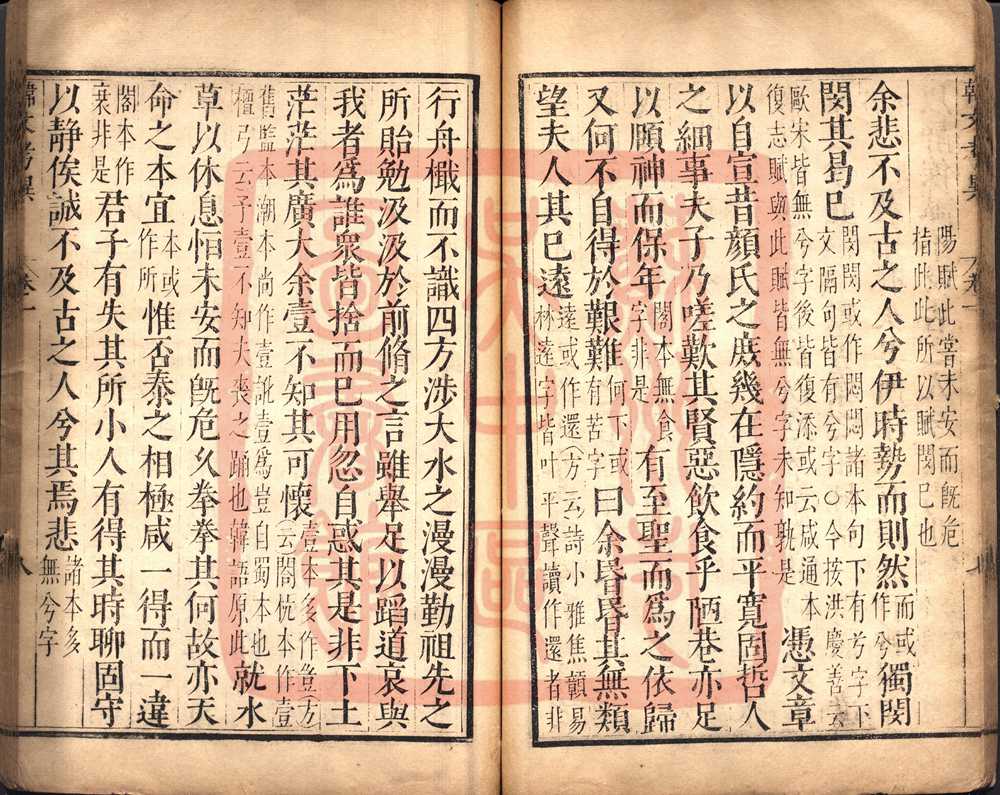 韓文考異 卷一
陽賦此嘗未安而旣危
指此此所以賦閔巳也
余悲不及古之人兮伊時勢而則然而或作兮獨閔
閔其曷巳閔閔或作悶悶諸本句下有兮字下文隔句皆有兮字○今按洪慶善云
歐宋皆無兮字後皆復添或云成通本復志賦與此賦皆無兮字未知孰是憑文章
以自宣昔顔氏之庶幾在隱約而平寛固哲人
之細事夫子乃嗟歎其賢惡飲食乎陋巷亦足
以頤神而保年閣本無食字非是有至聖而爲之依歸
又何不自得於艱難何下或有苦字曰余昏昏其無類
望夫人其巳遠遠或作還(方云詩小雅焦顚易林遠字皆叶平聲讀作還者非
行舟檝而不識四方涉大水之漫漫勤祖先之
所貽勉汲汲於前脩之言雖舉足以蹈道哀與
我者爲誰衆皆捨而巳用忽自惑其是非下土
茫茫其廣大余壹不知其可懷壹本多作豈(方云閣杭本作壹
舊監本潮本尚作壹訛壹爲豈自蜀本也檀弓云予壹不知夫喪之踊也韓語原此就水
草以休息怕未安而旣危久拳拳其何故亦天
命之本宜本或作所惟否泰之相極咸一得而一違
閣本作衰非是君子有失其所小人有得其時聊固守
以静俟誠不及古之人兮其焉悲諸本多無兮字
韓文考異 卷一 八
蘇州市
吳中區
圖書館